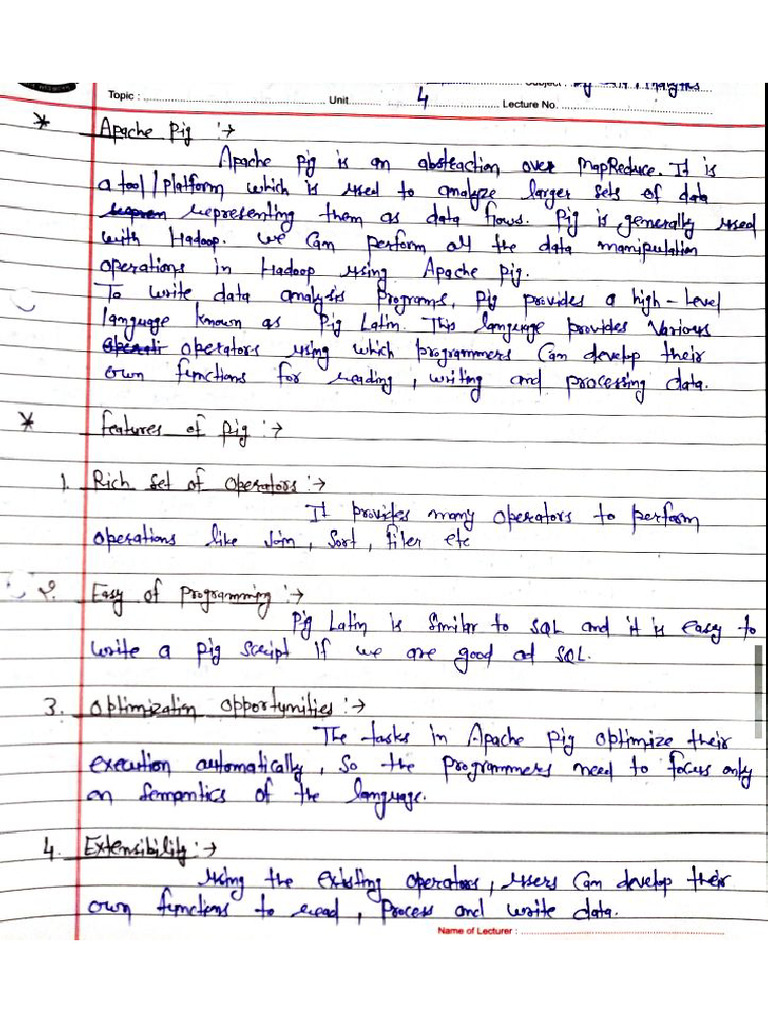 Topic : Unit 4 Lecture No.
* Apache Pig :→
Apache Pig is an abstraction over MapReduce. It is
a tool/platform which is used to analyze larger sets of data
representing them as data flows. Pig is generally used
with Hadoop. We can perform all the data manipulation
operations in Hadoop using Apache Pig.
To write data analysis programs, Pig provides a high-level
language known as Pig Latin. This language provides various
operators using which programmers can develop their
own functions for reading, writing and processing data.
* Features of Pig :→
1. Rich Set of Operators :→
It provides many operators to perform
operations like Join, Sort, filer etc
2. Easy of Programming :→
Pig Latin is similar to SQL and it is easy to
write a Pig script if we are good ad SQL.
3. Optimization Opportunities :→
The tasks in Apache Pig optimize their
execution automatically, so the programmers need to focus only
on semantics of the language.
4. Extensibility :→
Using the existing operators, users can develop their
own functions to read, process and write data.
Name of Lecturer :